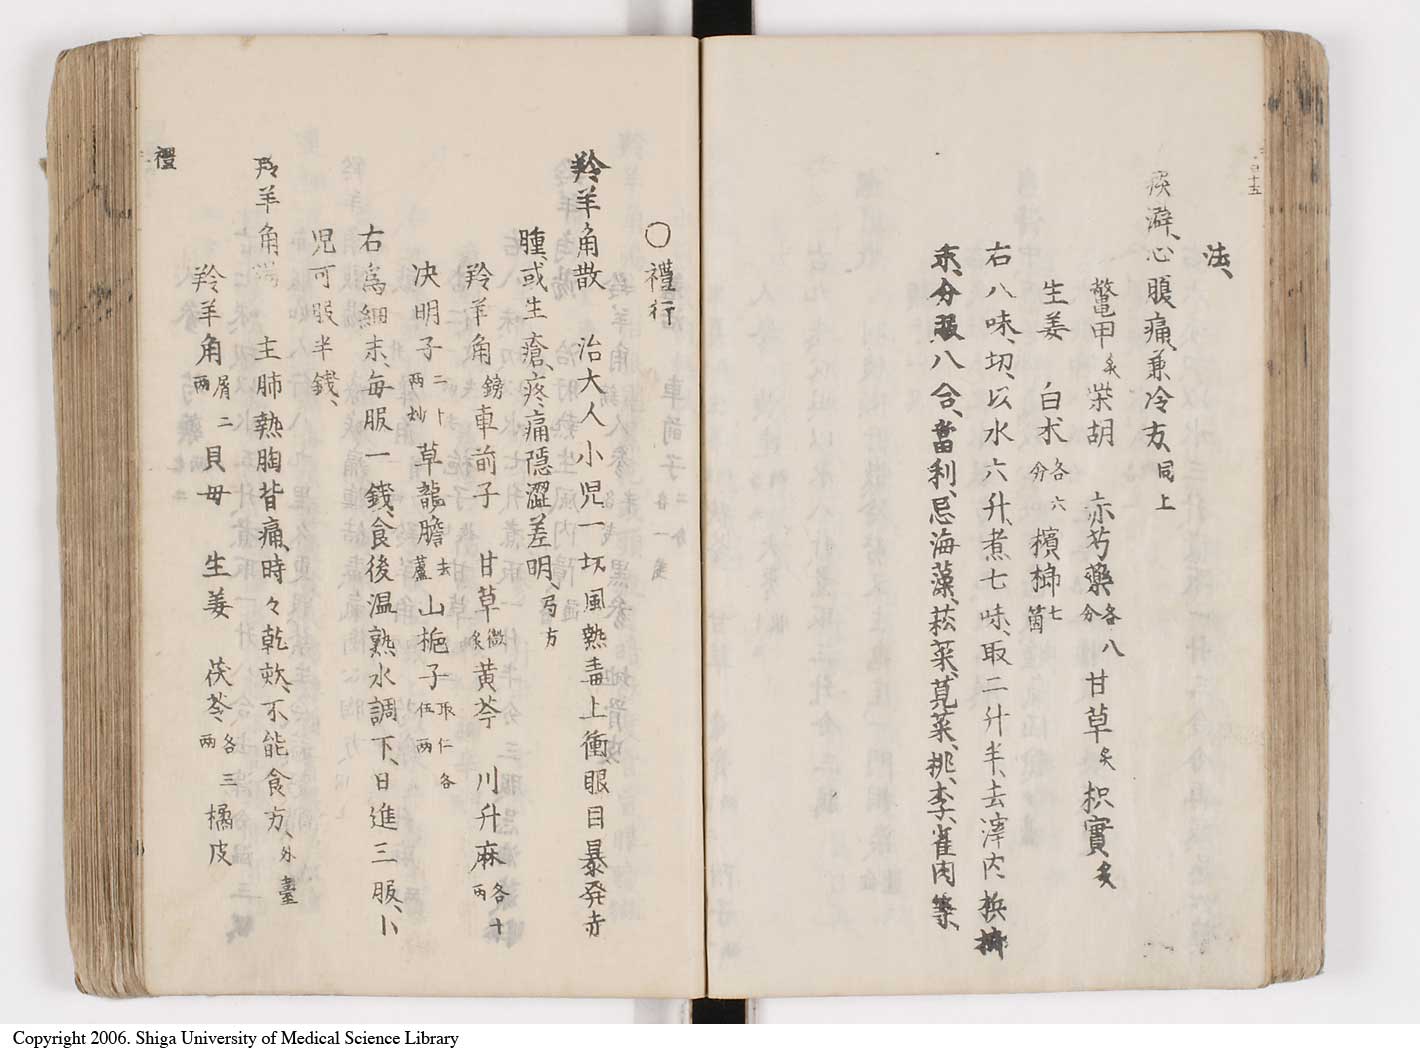 法、
痃澼、心腹痛、兼冷方、同上
鼈甲炙 柴胡 赤芍藥各八分 甘草炙 枳實炙
生姜 白朮各六分 檳榔七箇
右八味、切、以水六升、煮七味、取二升半、去滓、内檳榔
末、分服八合、當利、忌海藻、菘菜、莧菜、桃、李、雀肉等、
三十五
○禮行
羚羊角散 治大人小児一切風熱毒上衝眼目暴発赤
腫、或生瘡、疼痛隠澀羞明、局方
羚羊角鎊 車前子 甘草微炙 黄芩 川升麻各十両
決明子二十両炒 草龍膽去蘆 山梔子取仁各伍両
右為細末、毎服一銭、食後温熟水調下、日進三服、小
児可服半銭、
羚羊角湯 主肺熱胸背痛、時々乾欬、不能食方、外臺
羚羊角屑二両 貝母 生姜 茯苓各三両 橘皮
禮
Copyright 2006. Shiga University of Medical Science Library